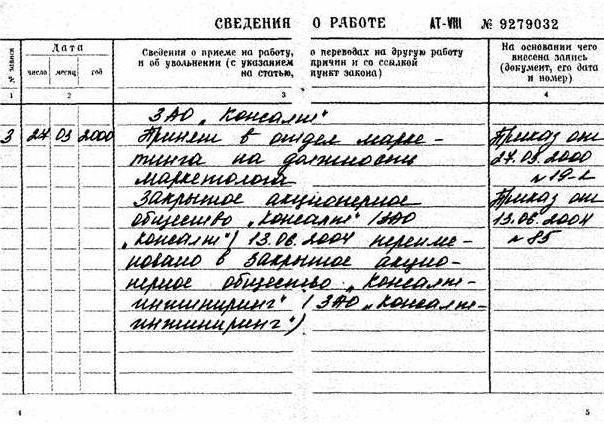 СВЕДЕНИЯ О РАБОТЕ АТ-VIII № 9279032
№ записи
Дата
число месяц год
Сведения о приеме на работу, о переводах на другую работу
и об увольнении (с указанием причин и со ссылкой
на статью, пункт закона)
На основании чего
внесена запись
(документ, его дата
и номер)
1 2 3 4
ЗАО „Консалт"
3 27 03 2000 Принят в отдел марке- Приказ от
тинга на должность 27.03.2000
маркетолога №19-л
Закрытое акционерное Приказ от
общество „Консалт" (ЗАО 13.06.2004
„Консалт") 13.06.2004 переиме- №85
новано в Закрытое акцио-
нерное общество „Консалт-
инжиниринг" (ЗАО „Консалт-
инжиниринг")
4 5